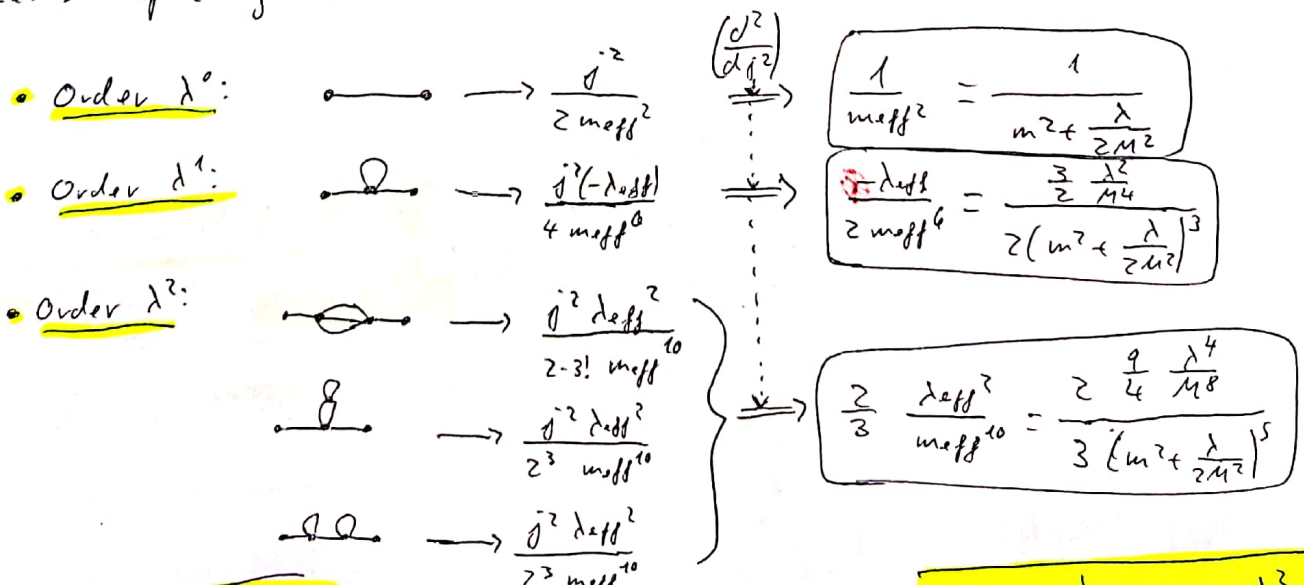 (d²/dj²)
• Order λ⁰: → j²/(2 meff²) ⇒ 1/meff² = 1/(m² + λ/(2M²))
• Order λ¹: → j²(-λeff)/(4 meff⁶) ⇒ -λeff/(2 meff⁶) = (3/2 λ²/M⁴)/(2(m² + λ/(2M²))³)
• Order λ²: → j² λeff²/(2·3! meff¹⁰)
→ j² λeff²/(2³ meff¹⁰) ⇒ 2/3 λeff²/meff¹⁰ = (2 9/4 λ⁴/M⁸)/(3(m² + λ/(2M²))⁵)
→ j² λeff²/(2³ meff¹⁰)